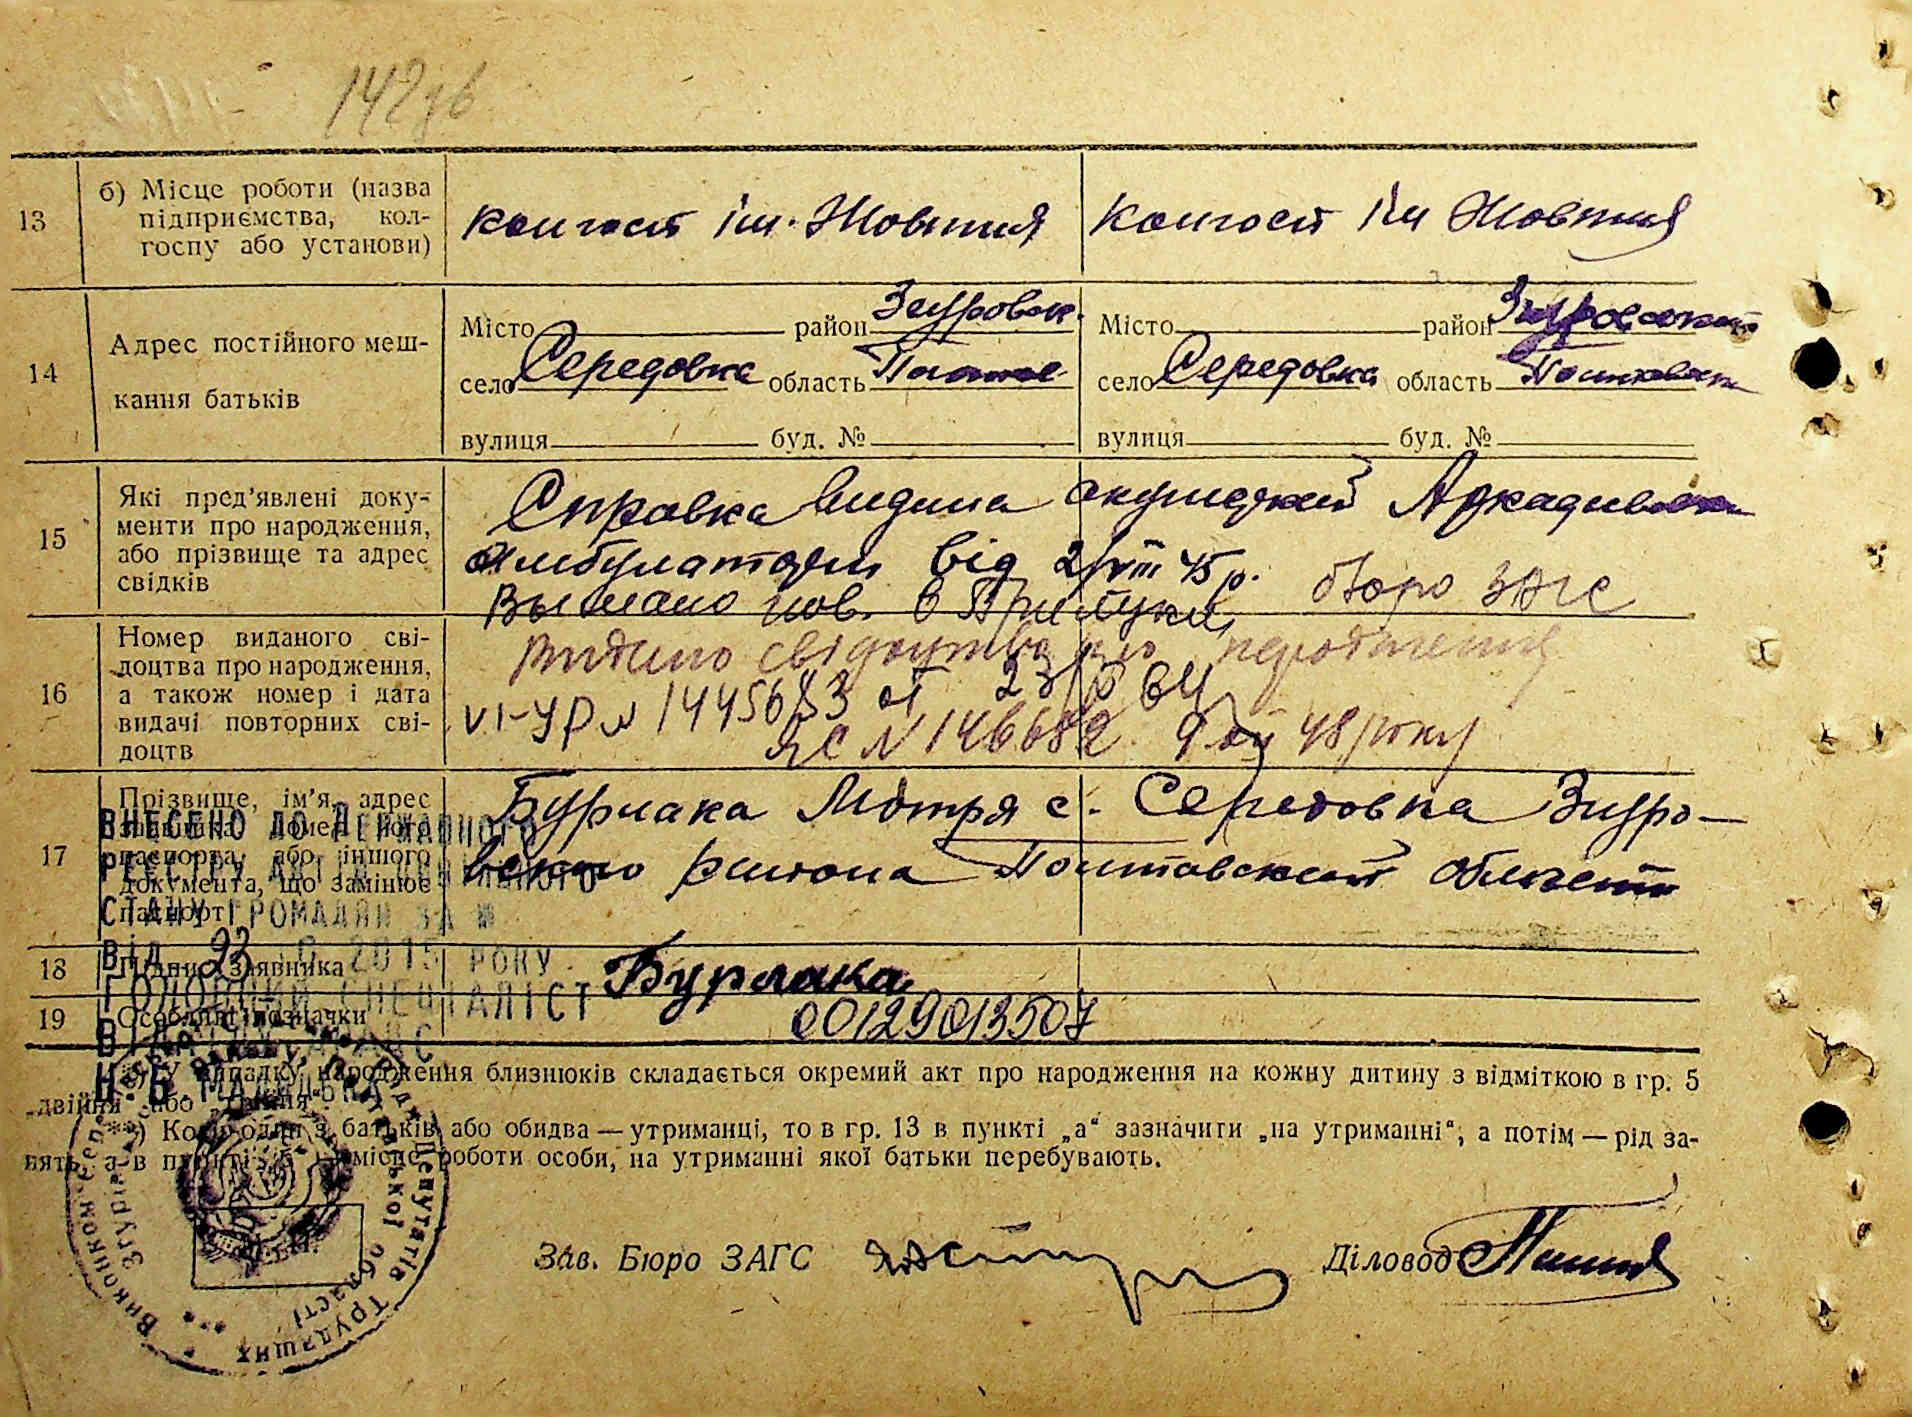 142
13
б) Місце роботи (назва
підприємства, кол-
госпу або установи)
Колгосп ім. Жовтня
Колгосп ім Жовтня
14
Адрес постійного меш-
кання батьків
Місто район Згуровск.
село Середовка область
вулиця буд. №
Місто район
село Середовка область
вулиця буд. №
15
Які пред’явлені доку-
менти про народження,
або прізвище та адрес
свідків
Справка видана Аркадиевск
амбулаторы від 2/VIII 45 р. бюро ЗАГС
16
Номер виданого сві-
доцтва про народження,
а також номер і дата
видачі повторних сві-
доцтв
в Прилуки
видано свідоцтво про
VI-УР №
ЯС № 146682 48 року
17
Прізвище, ім’я, адрес
заявника, номер його
паспорта або іншого
документа, що замінює
паспорт
Бурлака Мотря с. Середовка Згуро-
вского района Полтавской области
18
Підпис заявника
Бурлака
19
Особливі позначки
00129013507
ВНЕСЕНО ДО ДЕРЖАВНОГО
РЕЄСТРУ АКТІВ ЦИВІЛЬНОГО
СТАНУ ГРОМАДЯН ЗА №
ВІД 23 2015 РОКУ
ГОЛОВНИЙ СПЕЦІАЛІСТ
*) У випадку народження близнюків складається окремий акт про народження на кожну дитину з відміткою в гр. 5
„двійня“ або „трійня“.
**) Коли один з батьків або обидва — утриманці, то в гр. 13 в пункті „а“ зазначити „на утриманні“, а потім — рід за-
нять, а в пункті „б“ — місце роботи особи, на утриманні якої батьки перебувають.
Зав. Бюро ЗАГС
Діловод
Депутатів Трудящих
області